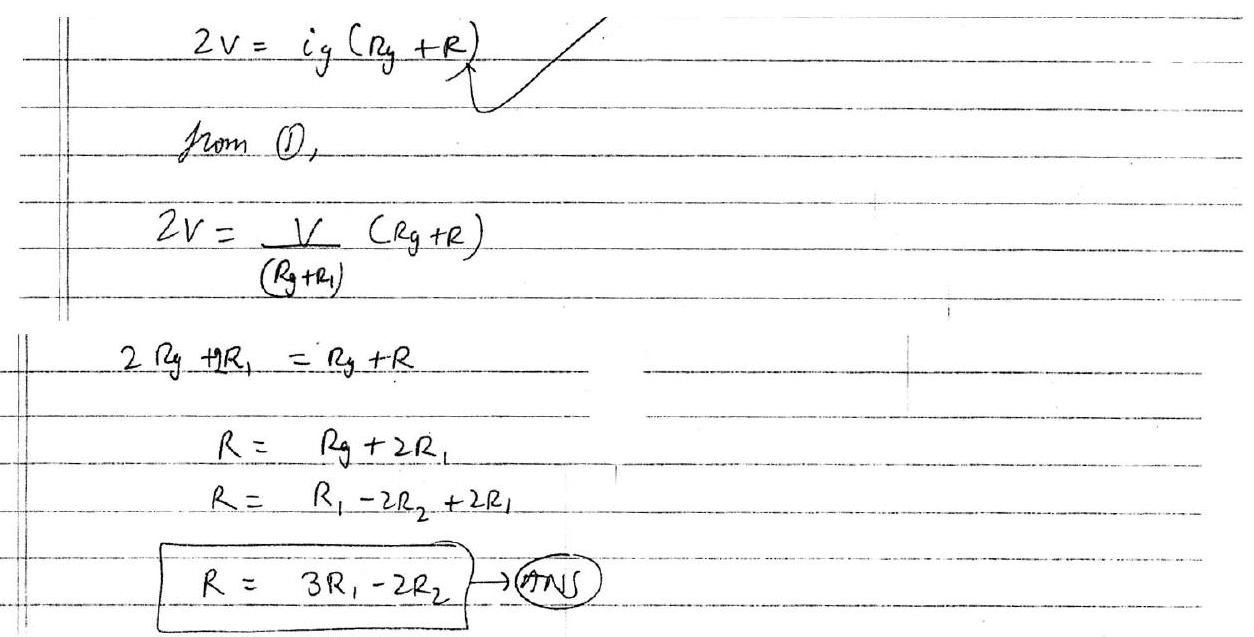 2V = ig (Rg + R)
from ①,
2V = V/(Rg + R₁) (Rg + R)
2 Rg + 2R₁ = Rg + R
R = Rg + 2R₁
R = R₁ - 2R₂ + 2R₁
R = 3R₁ - 2R₂ → ANS